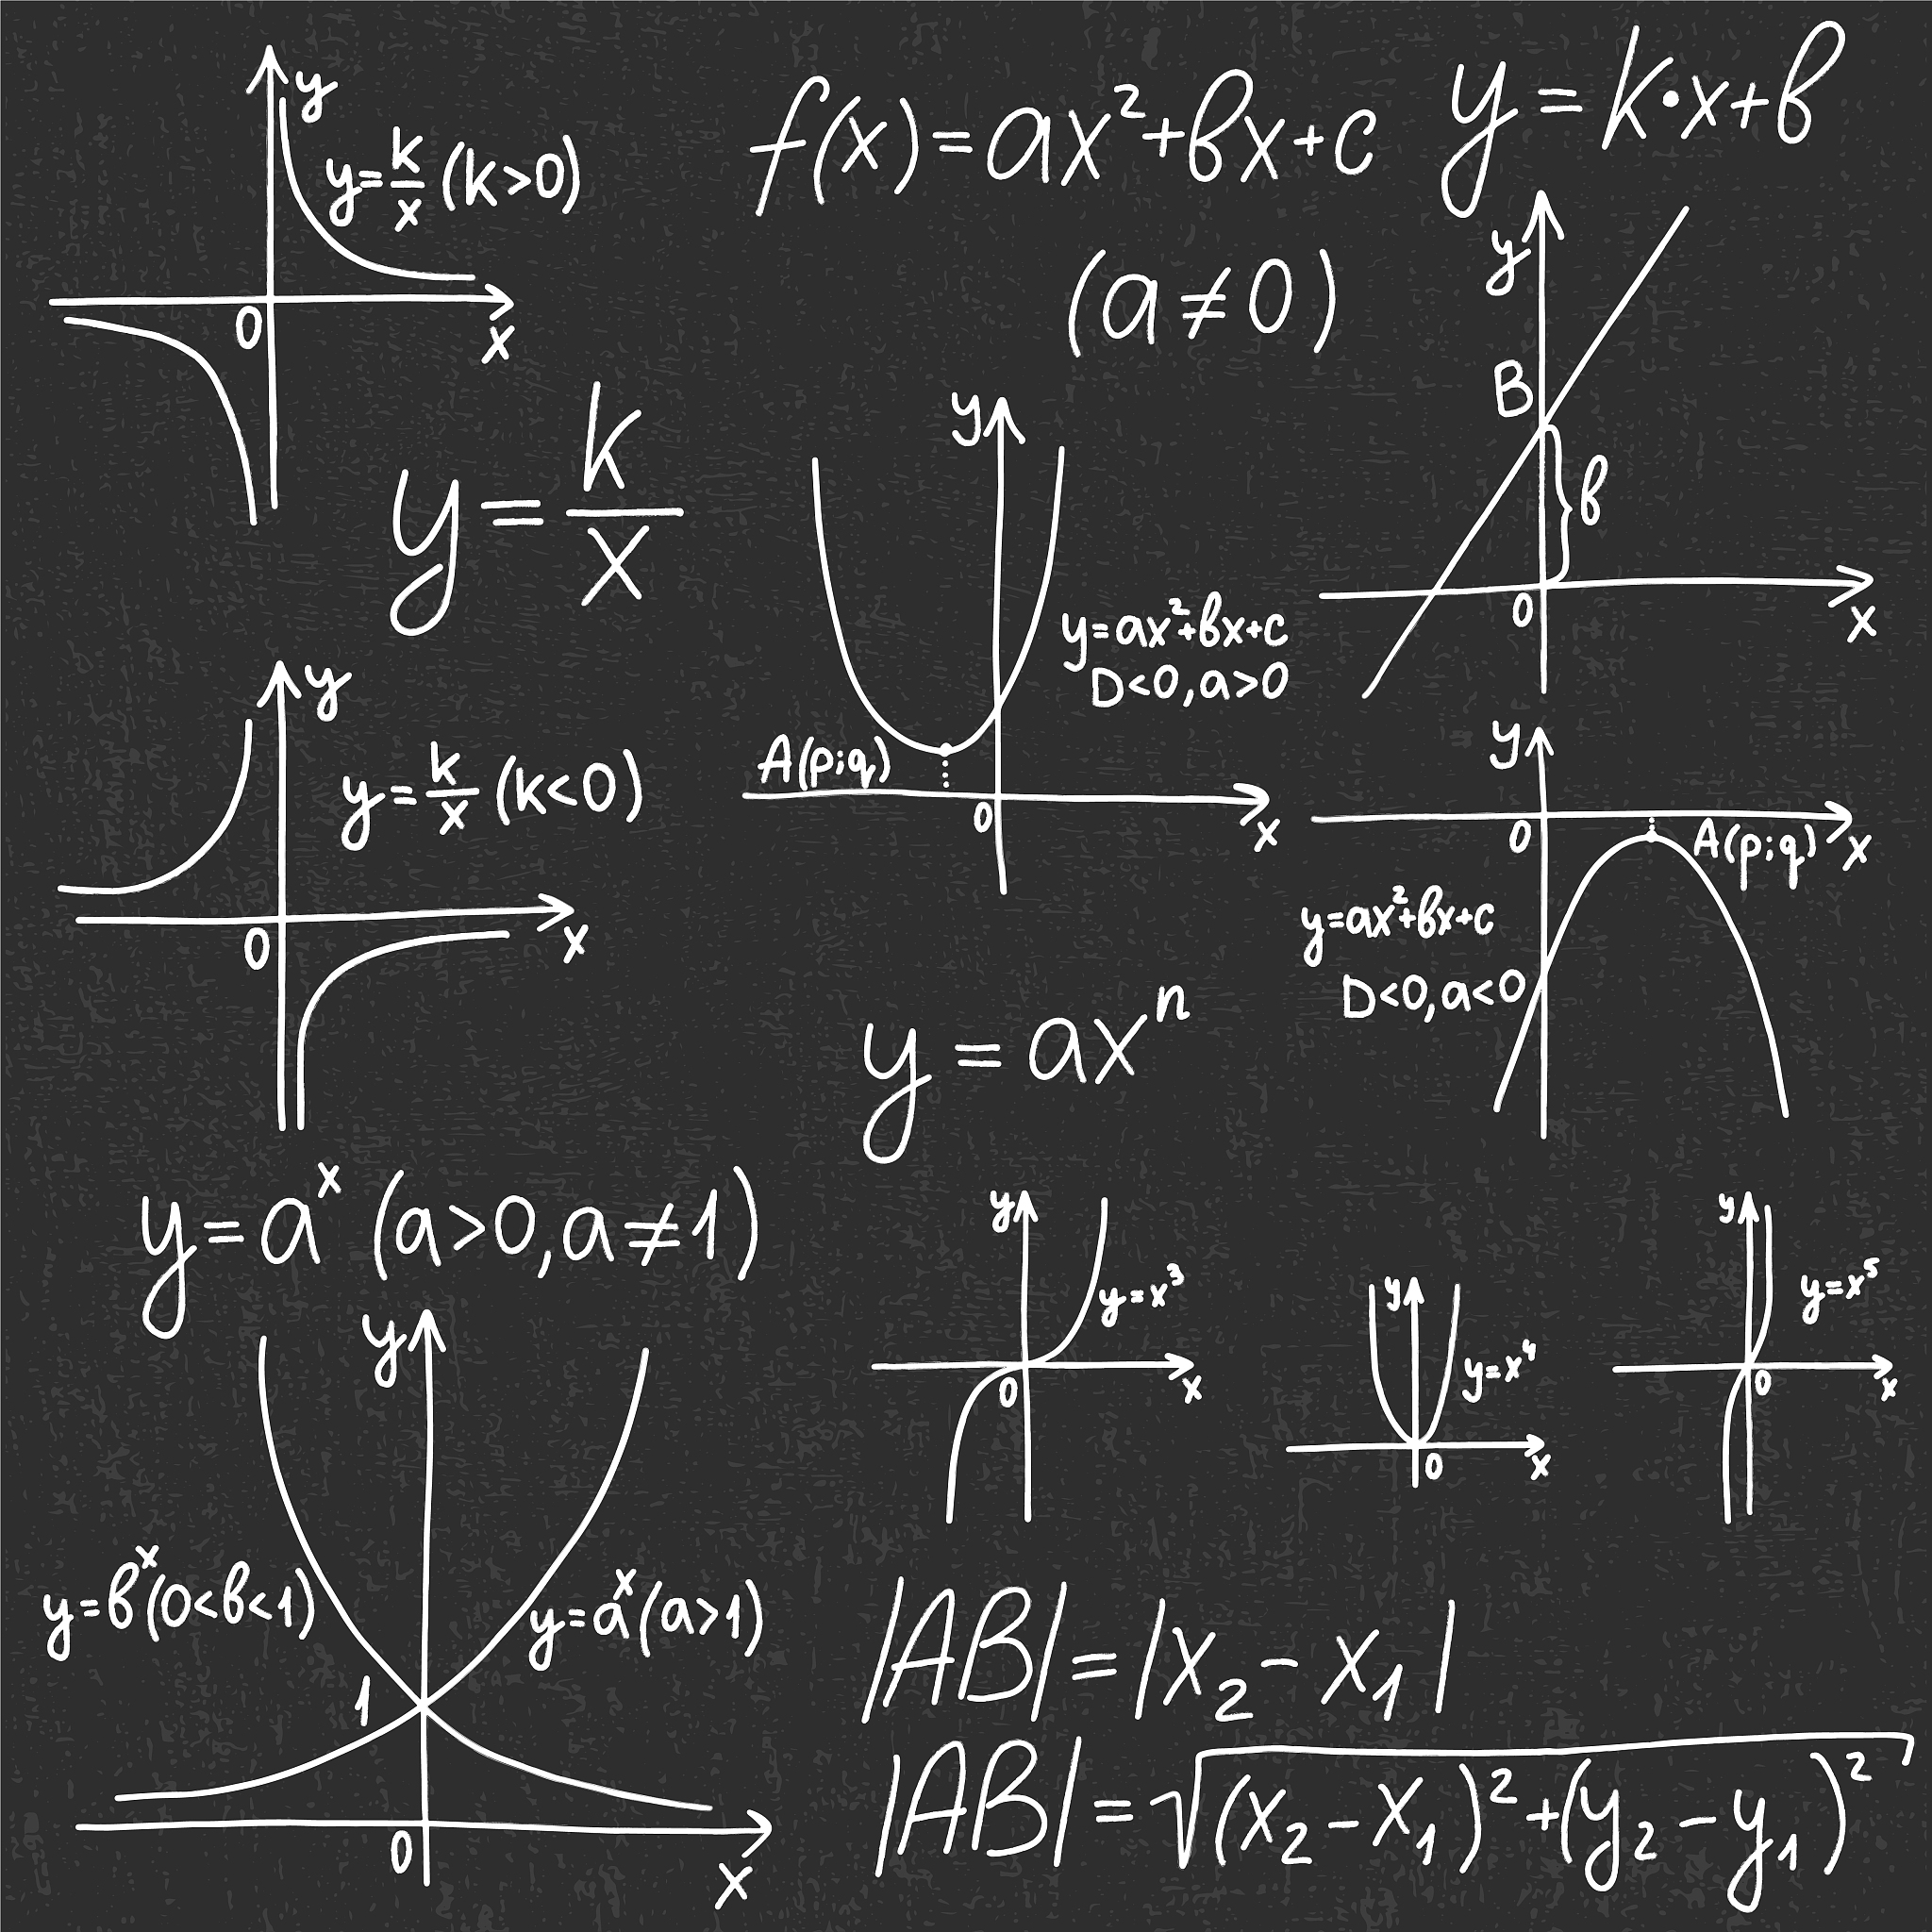 y
y=k/x (k>0)
0
x
f(x)=ax²+bx+c
(a≠0)
y=k·x+b
y
B
b
0
x
y=k/x
y
y=ax²+bx+c
D<0,a>0
A(p;q)
0
x
y
y=k/x (k<0)
0
x
y
0
A(p;q)
x
y=ax²+bx+c
D<0,a<0
y=axⁿ
y=aˣ (a>0,a≠1)
y
y=bˣ(0<b<1)
y=aˣ(a>1)
1
0
x
y
y=x³
0
x
y
y=x⁴
0
x
y
y=x⁵
0
x
|AB|=|x₂-x₁|
|AB|=√(x₂-x₁)²+(y₂-y₁)²